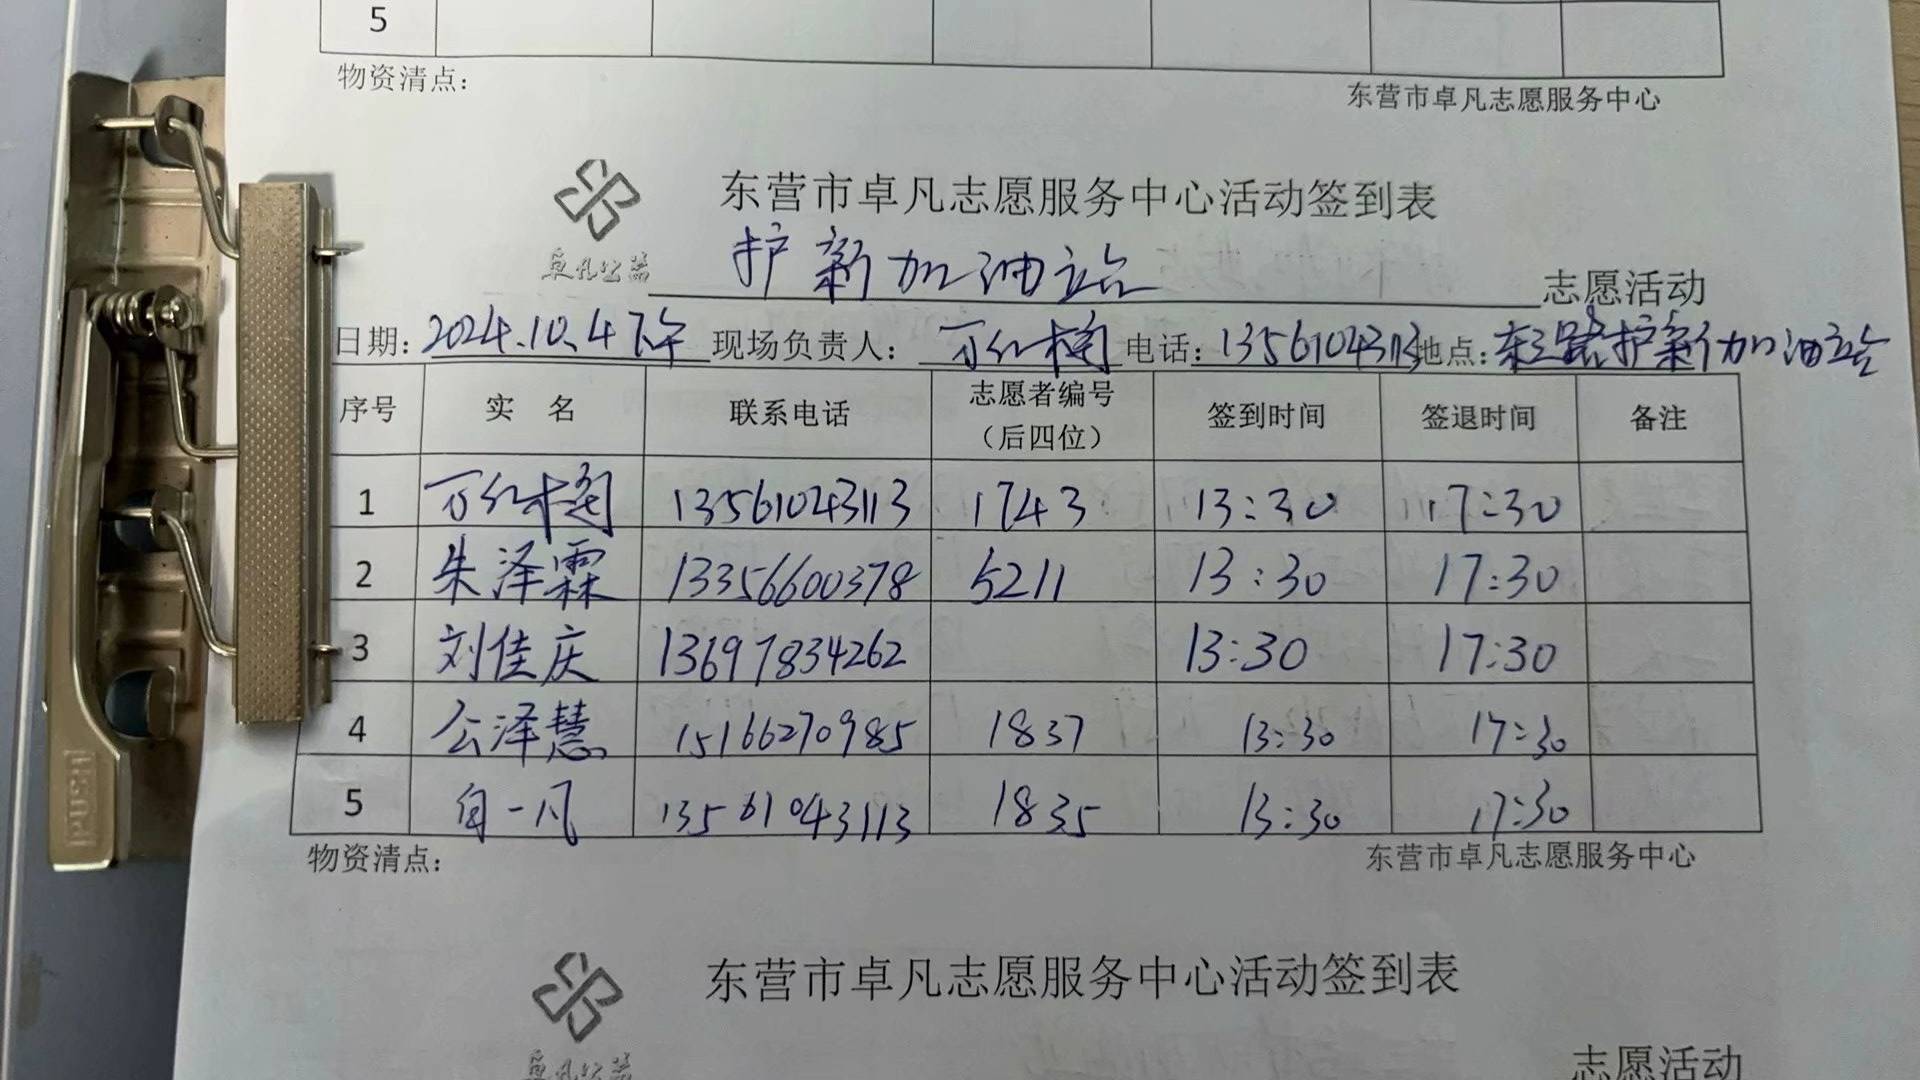 5
物资清点：
东营市卓凡志愿服务中心
东营市卓凡志愿服务中心活动签到表
卓凡公益
护新加油站 志愿活动
日期：2024.10.4下午 现场负责人：万红梅 电话：13561043113 地点：东三路护新加油站
序号 实 名 联系电话 志愿者编号（后四位） 签到时间 签退时间 备注
1 万红梅 13561043113 1743 13:30 17:30
2 朱泽霖 13356600378 5211 13:30 17:30
3 刘佳庆 13697834262 13:30 17:30
4 公泽慧 15166270985 1837 13:30 17:30
5 自一凡 13561043113 1835 13:30 17:30
物资清点：
东营市卓凡志愿服务中心
东营市卓凡志愿服务中心活动签到表
卓凡公益
志愿活动